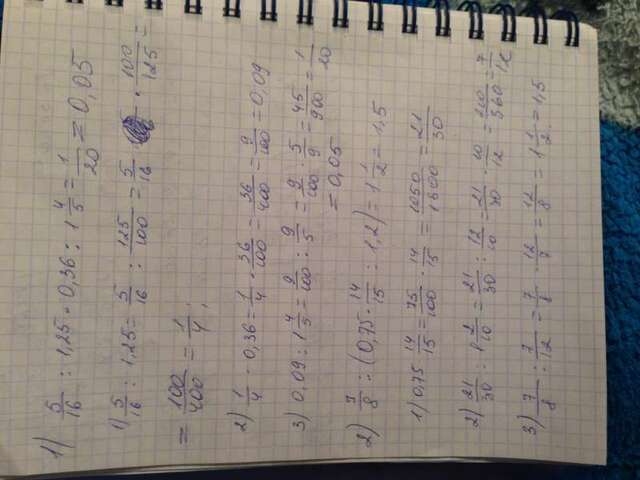 1) 5/16 : 1,25 · 0,36 : 1 4/5 = 1/20 = 0,05
1) 5/16 : 1,25 = 5/16 : 125/100 = 5/16 · 100/125 =
= 100/400 = 1/4;
2) 1/4 · 0,36 = 1/4 · 36/100 = 36/400 = 9/100 = 0,09
3) 0,09 : 1 4/5 = 9/100 : 9/5 = 9/100 · 5/9 = 45/900 = 1/20
= 0,05
2) 7/8 : (0,75 · 14/15 : 1,2) = 1 1/2 = 1,5
1) 0,75 · 14/15 = 75/100 · 14/15 = 1050/1500 = 21/30
2) 21/30 : 1 2/10 = 21/30 : 12/10 = 21/30 · 10/12 = 210/360 = 7/12
3) 7/8 : 7/12 = 7/8 · 12/7 = 12/8 = 1 1/2 = 1,5